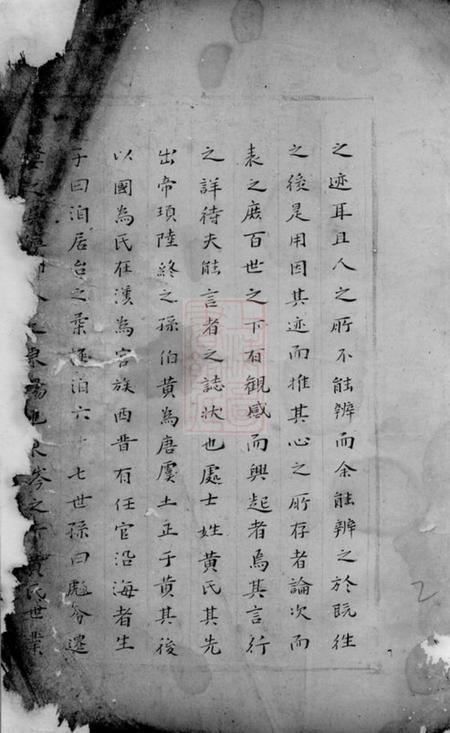 之迹耳且人之所不能辨而余能辨之於既往
之後是用因其迹而推其心之所存者論次而
表之庶百世之下有觀感而興起者焉其言行
之詳待夫能言者之誌狀也處士姓黃氏其先
出帝頊陸終之孫伯黃為唐虞土正于黃其後
以國為氏在漢為宦族西昔有任官沿海者生
子曰泊居台之葉泊六十七世孫曰彪分遷
之東之下黃氏世業
2